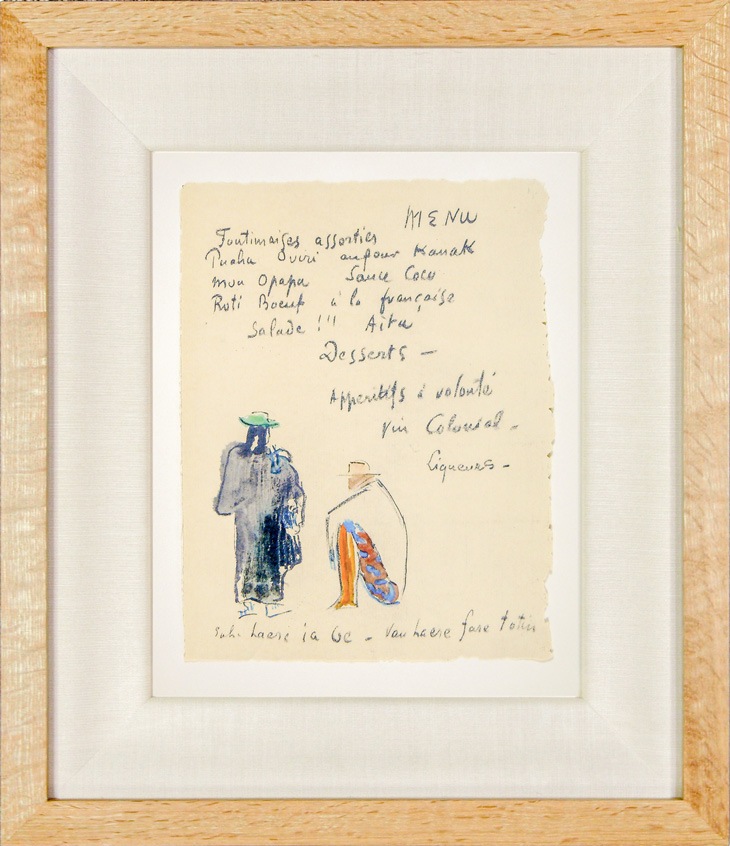 MENU
Foutimaises assorties
Puaha Oviri aufour Kanak
mua Opapa Sauce Coco
Roti Boeuf à la française
Salade !!! Aita
Desserts —
Apperitifs à volonté
Vin Colonial -
Liqueurs -
haere ia oe - Vau haere fare